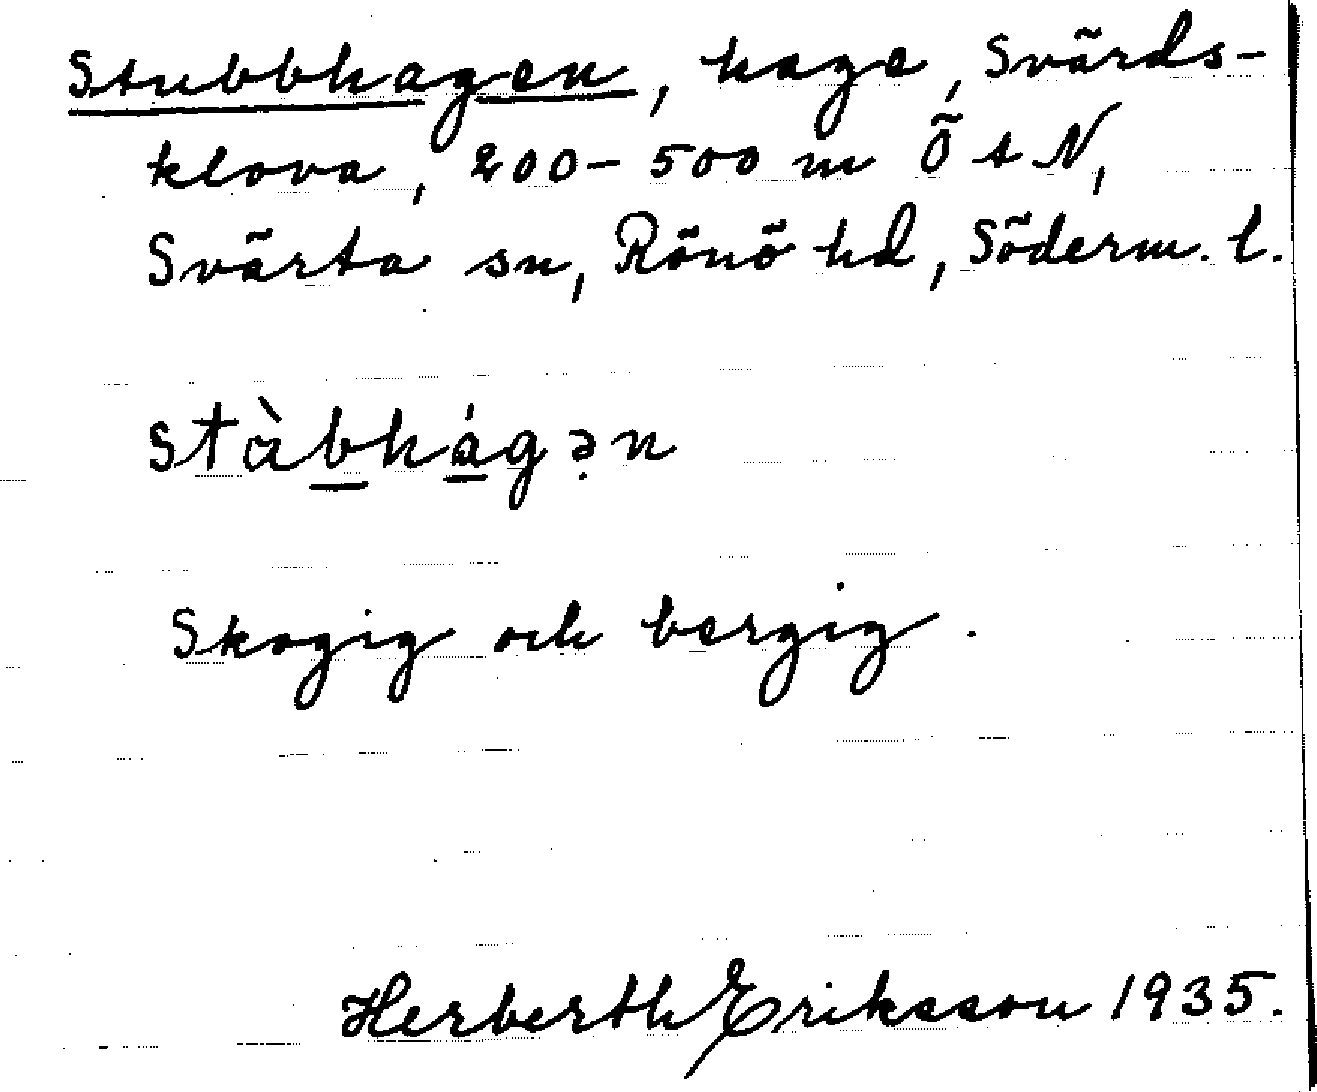 Stubbhagen, hage, Svärds-
klova, 200-500 m Ö t N,
Svärta sn, Rönö hd, Söderm. l.
stàbhágə̣n
Skogig och bergig.
Herberth Eriksson 1935.